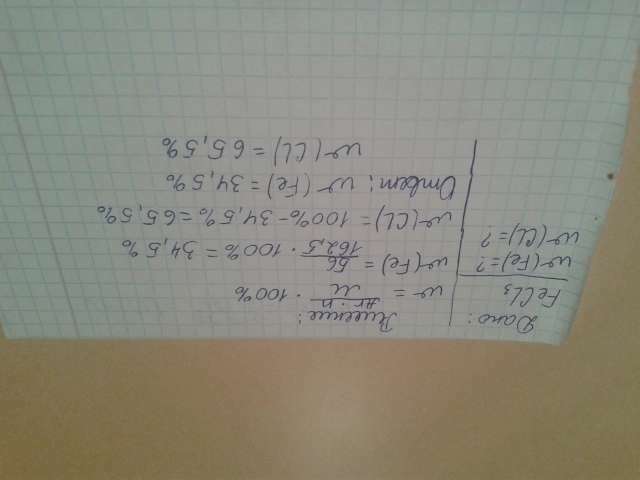 Дано:
FeCl₃
w(Fe)=?
w(Cl)=?
Решение:
w = Ar·n / M · 100%
w(Fe) = 56 / 162,5 · 100% = 34,5%
w(Cl) = 100% - 34,5% = 65,5%
Ответ: w(Fe) = 34,5%
w(Cl) = 65,5%